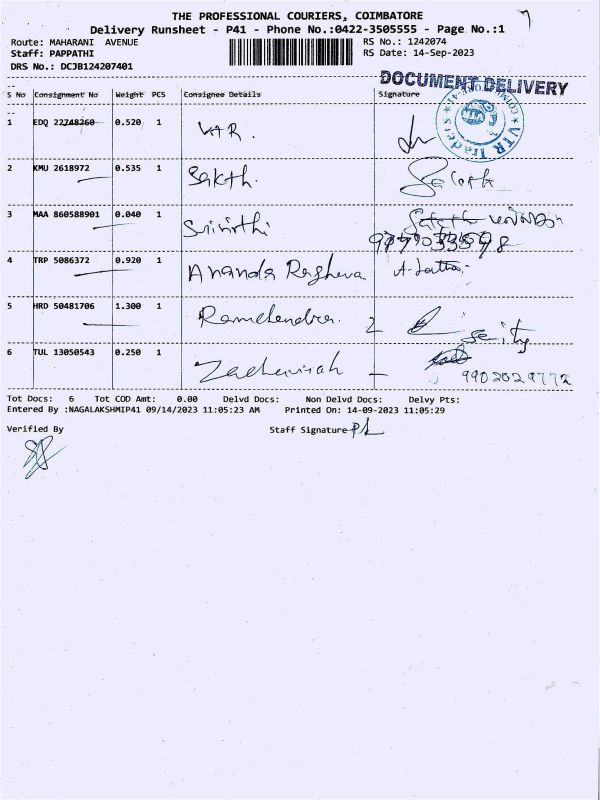 THE PROFESSIONAL COURIERS, COIMBATORE
Delivery Runsheet - P41 - Phone No.:0422-3505555 - Page No.:1
Route: MAHARANI AVENUE
RS No.: 1242074
Staff: PAPPATHI
RS Date: 14-Sep-2023
DRS No.: DCJB124207401
DOCUMENT DELIVERY
S No Consignment No Weight PCS Consignee Details Signature
1 EDQ 22748260 0.520 1
VTR Traders
2 KMU 2618972 0.535 1 Sakth.
3 MAA 860588901 0.040 1
4 TRP 5086372 0.920 1 Ananda Ragheva
5 HRD 50481706 1.300 1
6 TUL 13050543 0.250 1
9902029772
Tot Docs: 6 Tot COD Amt: 0.00 Delvd Docs: Non Delvd Docs: Delvy Pts:
Entered By :NAGALAKSHMIP41 09/14/2023 11:05:23 AM Printed On: 14-09-2023 11:05:29
Verified By Staff Signature